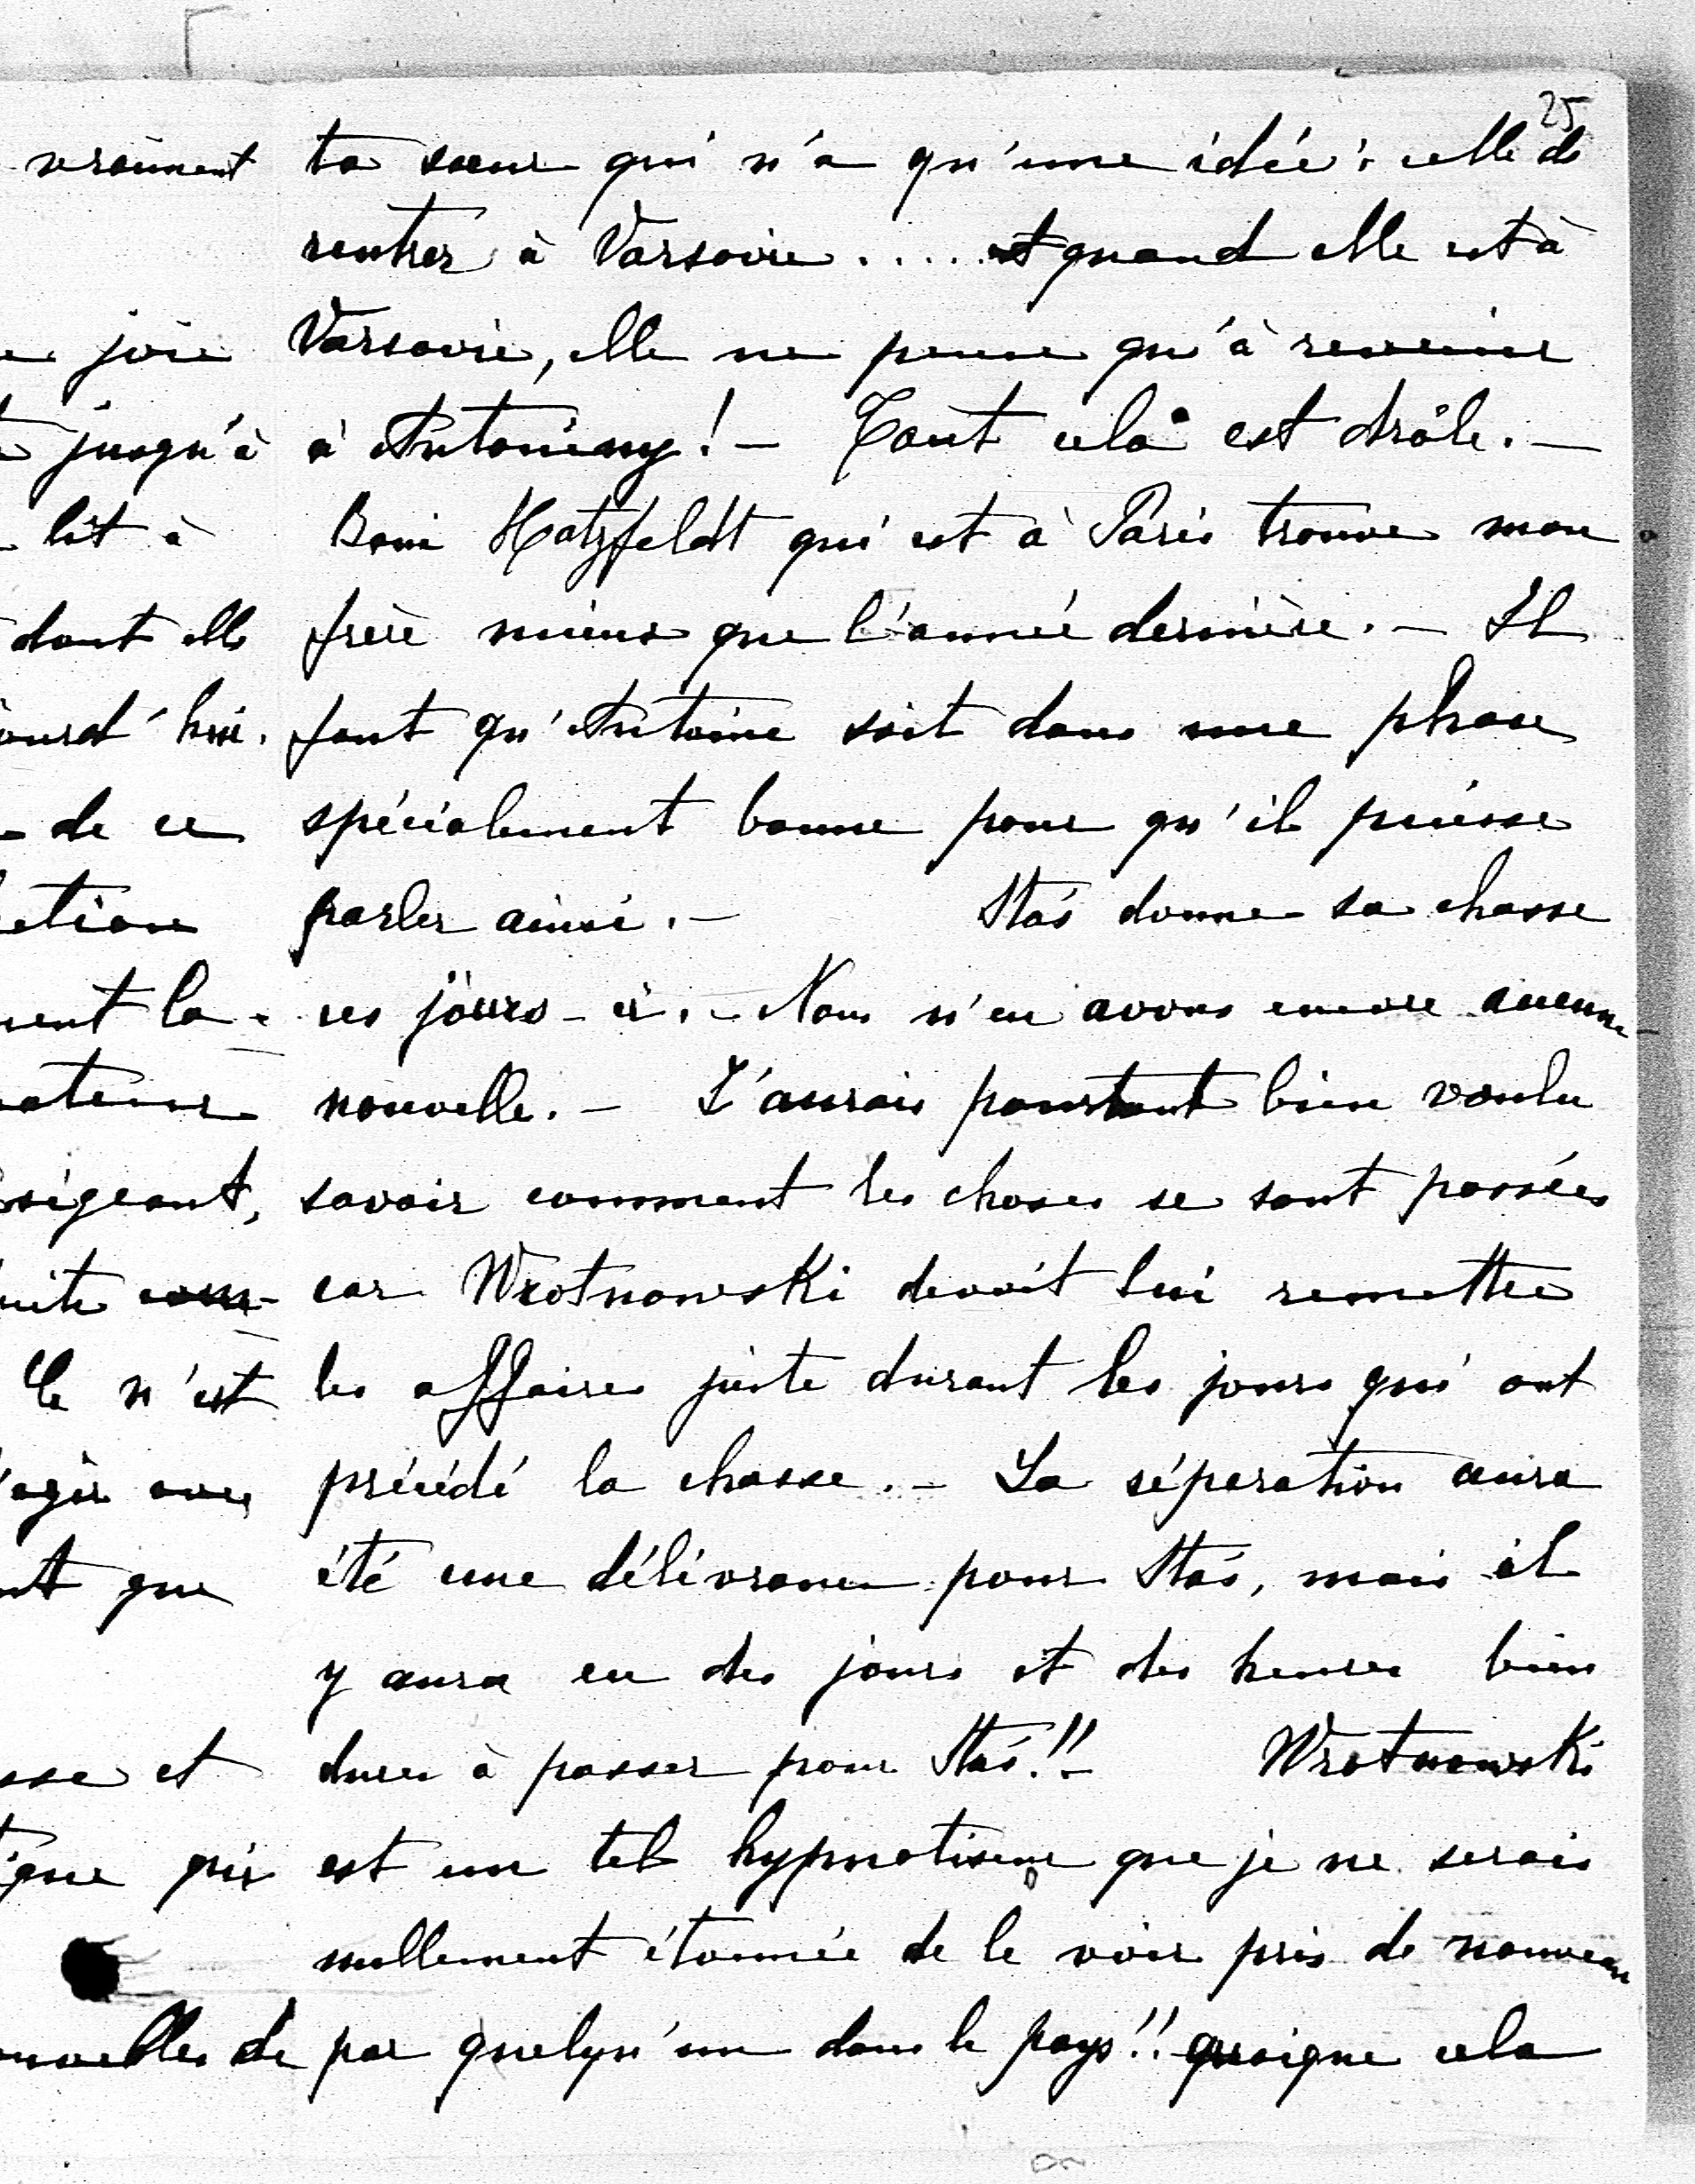 25
ta sœur qui n'a qu'une idée : celle de
rentrer à Varsovie ..... et quand elle est à
Varsovie, elle ne pense qu'à revenir
à Antoniny ! — Tout cela est drôle. —
Boni Hatzfeldt qui est à Paris trouve mon
frère mieux que l'année dernière. — Il
faut qu'Antoine soit dans une phase
spécialement bonne pour qu'il puisse
parler ainsi. — Staś donne sa chasse
ces jours-ci. — Nous n'en avons encore aucune
nouvelle. — J'aurais pourtant bien voulu
savoir comment les choses se sont passées
car Wrotnowski devait lui remettre
les affaires juste durant les jours qui ont
précédé la chasse. — La séparation aura
été une délivrance pour Staś, mais il
y aura eu des jours et des heures bien
dures à passer pour Staś !! — Wrotnowski
est un tel hypnotiseur que je ne serais
nullement étonnée de le voir pris de nouveau
par quelqu'un dans le pays !! quoique cela
vraiment
joie
jusqu'à
lit à
dont elle
ourd'hui.
de ce
ction
ent la
ateur
sigeant,
uite com-
Ce n'est
agir avec
nt que
sse et
ique qui
uvelles de